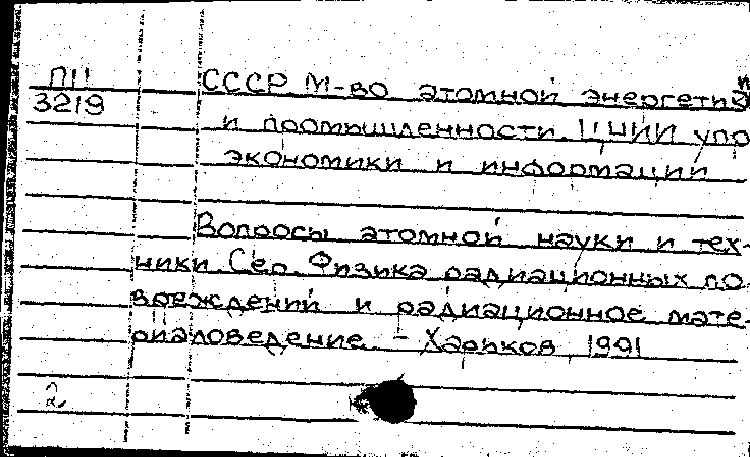 П11
3219
СССР М-во атомной энергетики
и промышленности. ЦНИИ упр.
экономики и информации
Вопросы атомной науки и тех-
ники. Сер. Физика радиационных по
вреждений и радиационное мате-
риаловедение. - Харьков, 1991
2